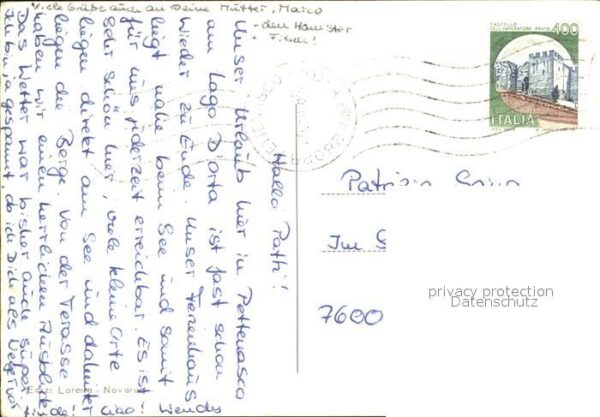 Viele Grüße auch an Deine Mutter, Marco
+ den Hamster
+ Fisch!
Hallo Patti!
Unser Urlaub hier in Pettenasco
am Lago D'orta ist fast schon
wieder zu Ende. Unser Ferienhaus
liegt nahe beim See und somit
für uns jederzeit erreichbar. Es ist
sehr schön hier, viele kleine Orte
liegen direkt am See und dahinter
liegen die Berge. Von der Terasse
haben wir einen herrlichen Ausblick.
Das Wetter war bisher auch super.
Ich bin ja gespannt, ob ich Dich als
finde! Ciao! Wiendes
CASTELLO
DELL'IMPERATORE - PRATO
400
ITALIA
Patrizia
Im
7600
privacy protection
Datenschutz
Ediz: Loreno - Novara